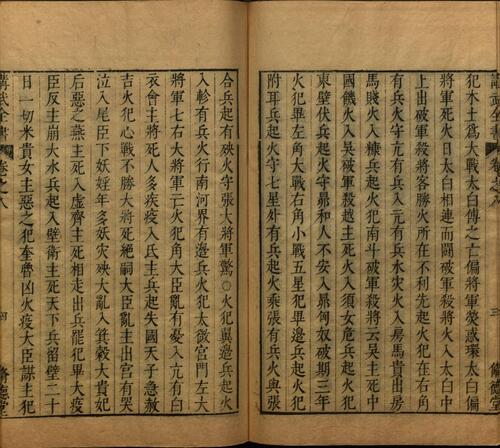 犯木土爲大戰太白傅之亡偏將軍熒惑環太白偏
將軍死火日太白相連而鬭破軍殺將火入太白中
上出破軍殺將客勝火所在不利先起火犯在右角
有兵火守亢有兵入亢有兵水灾火入房馬貴出房
馬賤火入糠兵起火犯南斗破軍殺將云吴主死中
國饑火入吴破軍殺越主死火入須女危兵起火犯
東壁伏兵起火守昴和人不安入昴匈奴破期三年
火犯畢左角大戰右角小戰五星犯畢邉兵起火犯
附耳兵起火守七星㪽有兵起火乘張有兵火與張
合兵起有殃火守張大將軍驚○火犯翼邉兵起火
入軫有兵火行南河界有邉兵火犯太微宫門左大
將軍七右大將軍亡火犯角大臣亂有憂入亢有白
衣會主將死人多疾疫入氐主兵起失國天子急赦
吉火犯心戰不勝大將死絶嗣大臣亂主出宫有哭
泣入尾臣下妖婬年多妖灾殃大亂入箕榖大貴妃
后惡之燕主死入虚齊主死相走出兵罷犯畢大疫
臣反主崩大水兵起入壁衛主死天下兵留壁二十
日一切米貴女主惡之犯奎魯凶火疫大臣謀主犯
講武全書 卷之八 四 脩德堂